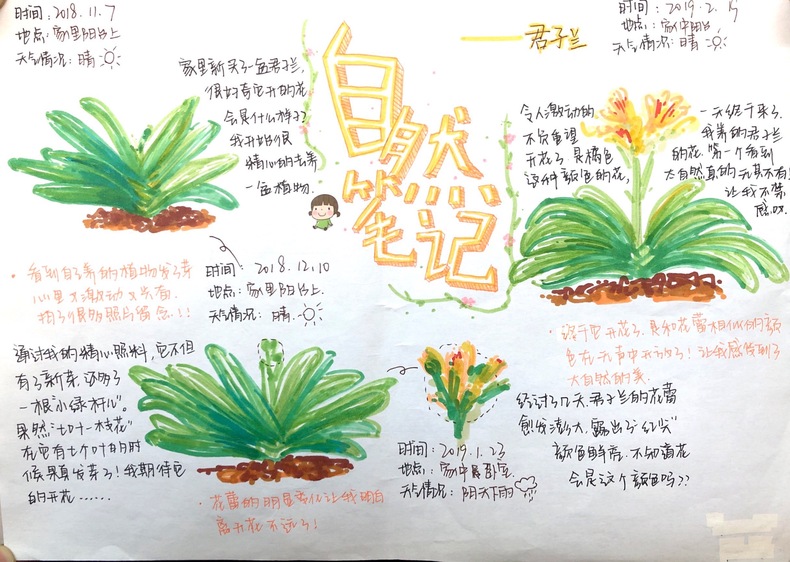 自然笔记
——君子兰
时间：2018.11.7
地点：家里阳台上
天气情况：晴
家里新买了一盆君子兰，
很好奇它开的花
会是什么样子？
我开始很
精心的去养
一盆植物．
看到自己养的植物发了芽
心里太激动
拍了很多照片留念!!!
时间：2018.12.10
地点：家里阳台上．
天气情况：晴．
通过我的精心照料，它不但
有了新芽，还多了
一根“小绿杆儿”。
果然“七叶一枝花”
在它有七个叶的时
候果真发芽了！我期待它
的开花……
花蕾的明显变化让我明白
离开花不远了！
时间：2019.1.23
地点：家中卧室．
天气情况：阴天下雨
经过了几天，君子兰的花蕾
愈发澎大，露出了“红尖”
颜色鲜艳．不知道花
会是这个颜色吗??
时间：2019.2.15
地点：家中阳台
天气情况：晴
令人激动的
不负重望
开花了．是橘色
这种颜色的花，
一天终于来了．
我养的君子兰
的花．第一个看到
大自然真的无其不有！
让我不禁
感叹．
终于它开花了．是和花蕾相似的颜
色在无声中开放了！让我感受到了
大自然的美．